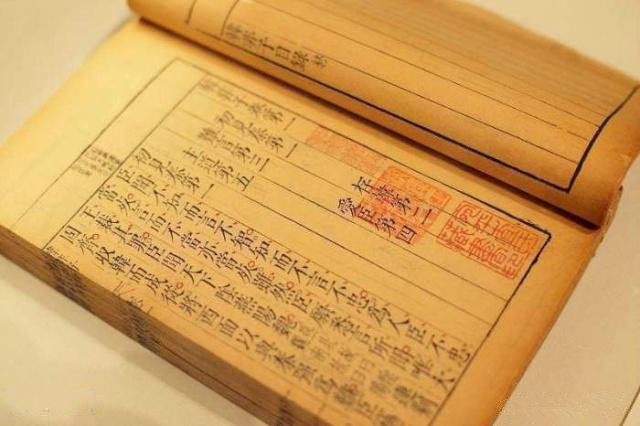 韓非子目錄 終
韓非子卷第一
初見秦第一 存韓第二
難言第三 愛臣第四
主道第五
初見秦第一
臣聞不知而言不智知而不言不忠為人臣不忠
當死言而不當亦當死雖然臣願悉言所聞唯大
王裁其罪臣聞天下陰燕陽魏
固齊收韓而成從將西面以與秦強為難臣